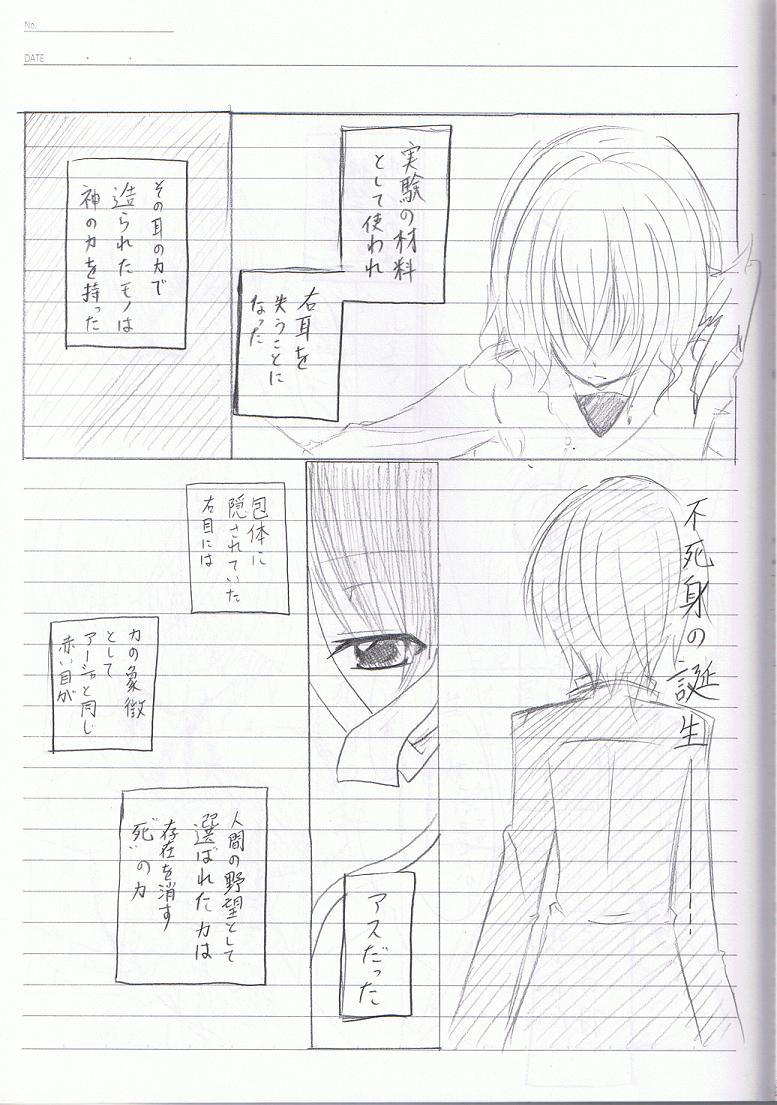 No.
DATE
実験の材料
として使われ
右耳を
失うことに
なった
その耳の力で
造られたモノは
神の力を持った
不死身の誕生
アスだった
包体に
隠されていた
右目には
力の象徴
として
と同じ
赤い目が
人間の野望として
選ばれた力は
存在を消す
"死"の力